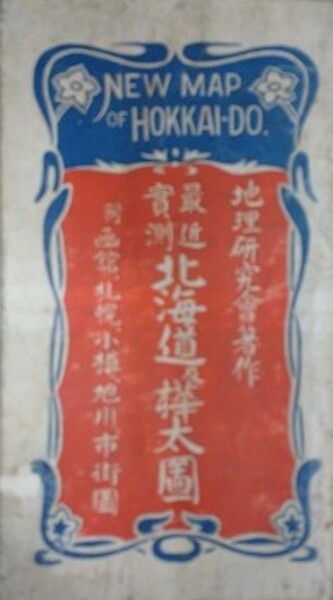 NEW MAP
OF HOKKAI-DO.
地理研究會著作
最近
實測
北海道及樺太圖
附 函館、札幌、小樽、旭川市街圖